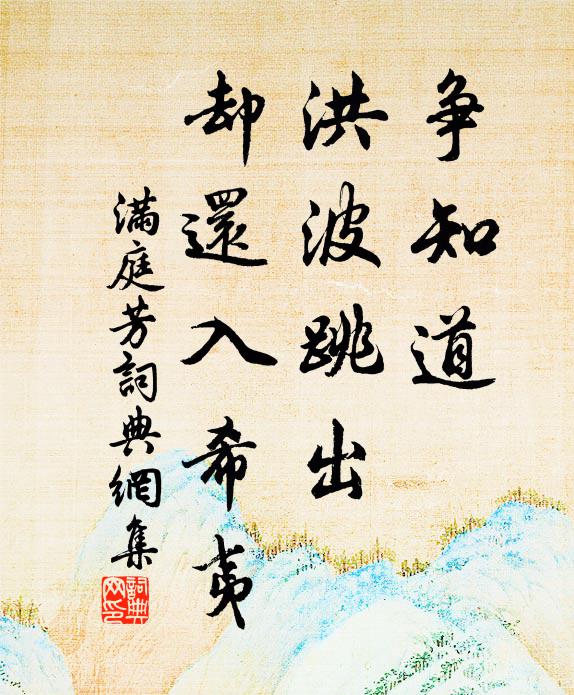 争知道
洪波跳出
却還入希夷
滿庭芳詞典網集
詞典